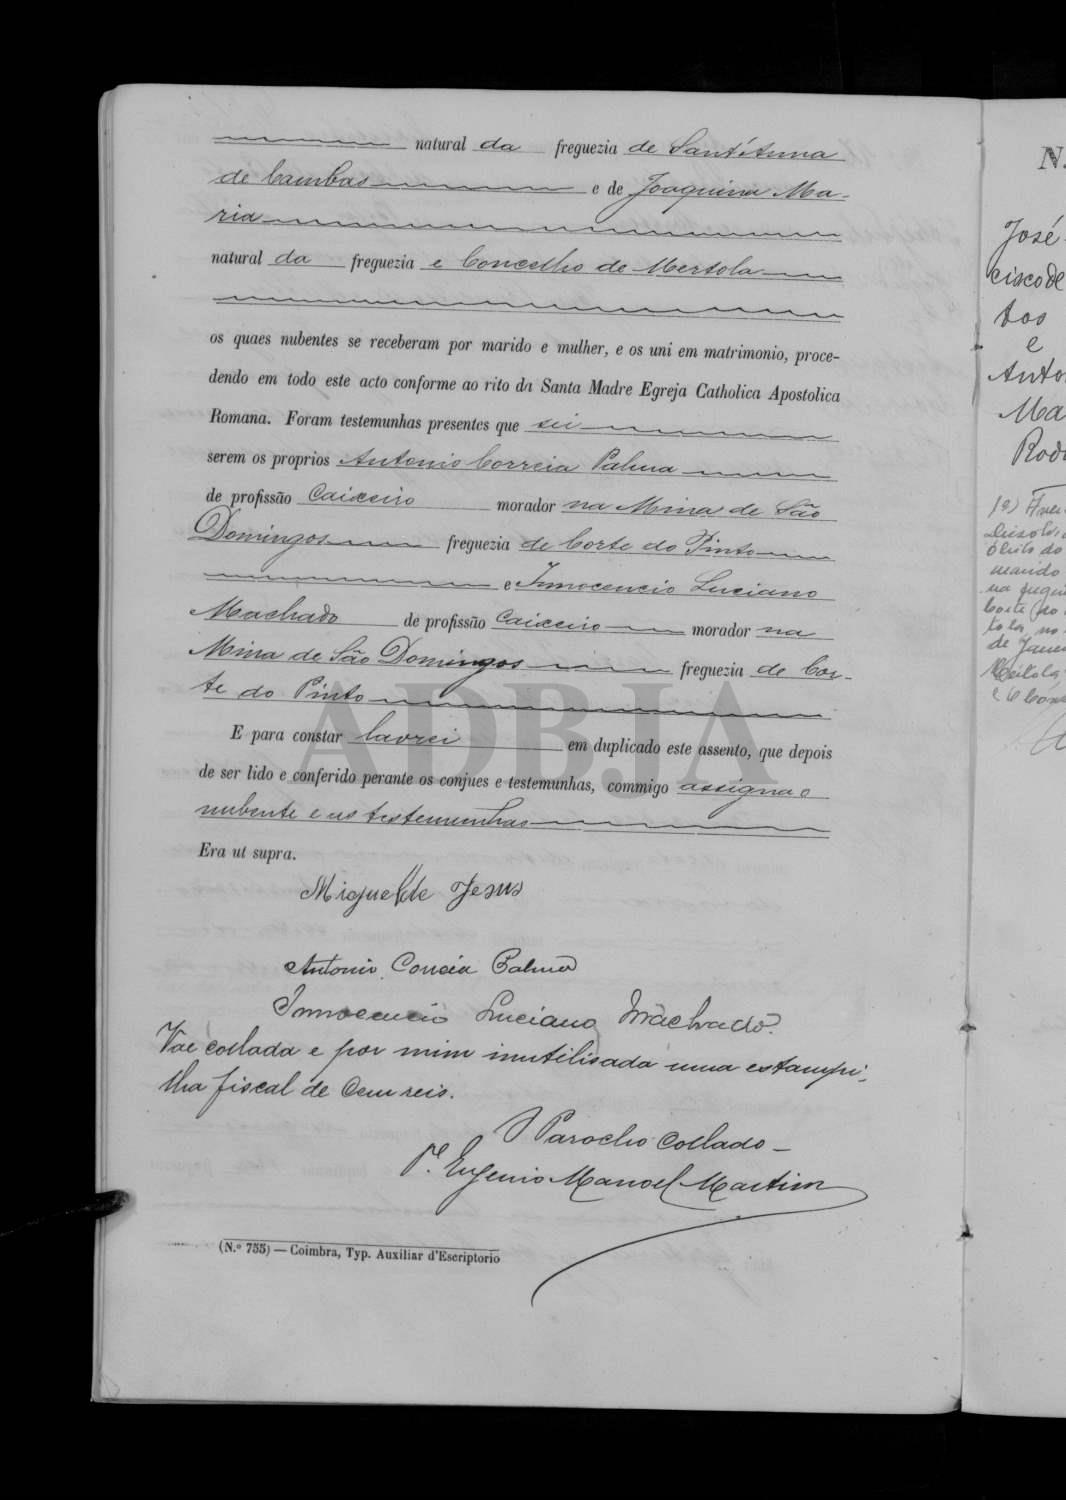 natural da freguezia de Sant'Anna
de Cambas e de Joaquina Ma-
ria
natural da freguezia e Concelho de Mertola
os quaes nubentes se receberam por marido e mulher, e os uni em matrimonio, proce-
dendo em todo este acto conforme ao rito da Santa Madre Egreja Catholica Apostolica
Romana. Foram testemunhas presentes que sei
serem os proprios Antonio Correia Palma
de profissão Caixeiro morador na Mina de São
Domingos freguezia de Corte do Pinto
e Innocencio Luciano
Machado de profissão Caixeiro morador na
Mina de São Domingos freguezia de Cor-
te do Pinto
E para constar lavrei em duplicado este assento, que depois
de ser lido e conferido perante os conjues e testemunhas, commigo assigna o
nubente e as testemunhas
Era ut supra.
Miguel de Jesus
Antonio Correia Palma
Innocencio Luciano Machado.
Vae collada e por mim inutilisada uma estampi-
lha fiscal de Cem reis.
O Parocho Collado
P.e Eugenio Manoel Martins
(N.º 755) — Coimbra, Typ. Auxiliar d'Escriptorio
ADBJA
N.
José
cisco de
tos
e
Anto
Ma
Rodr
marido
na fregu
Corte do
tola, no
de Janei
Mertola